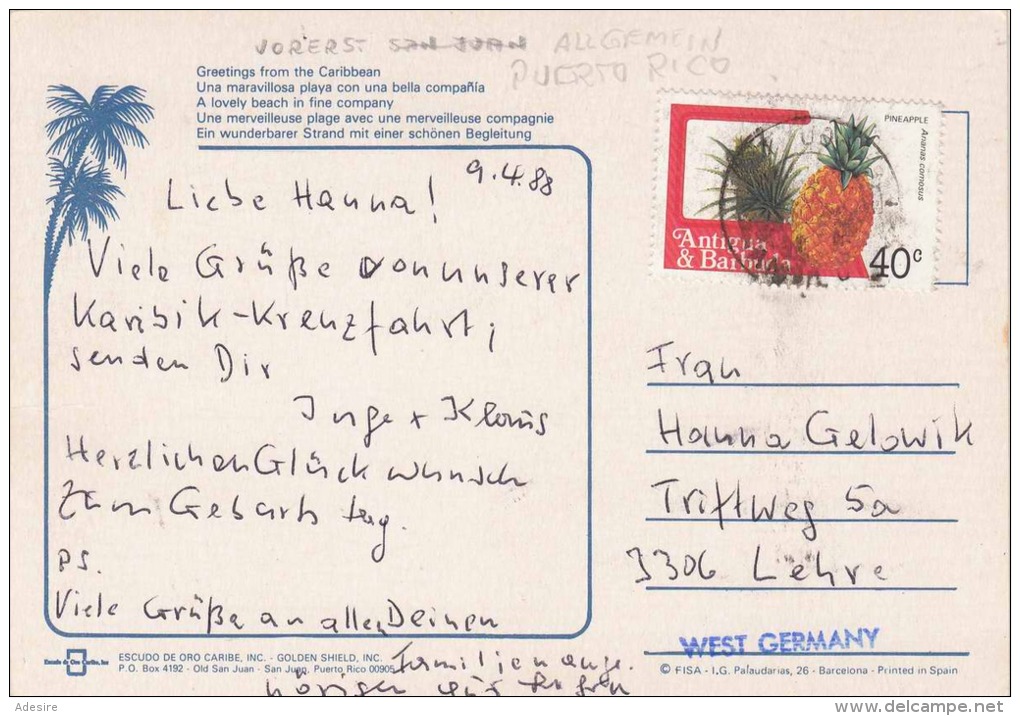 VORERST SAN JUAN ALLGEMEIN
PUERTO RICO
Greetings from the Caribbean
Una maravillosa playa con una bella compañía
A lovely beach in fine company
Une merveilleuse plage avec une merveilleuse compagnie
Ein wunderbarer Strand mit einer schönen Begleitung
9.4.88
Liebe Hanna!
Viele Grüße von unserer
Karibik-Kreuzfahrt,
senden Dir
Inge + Klaus
Herzlichen Glückwunsch
zum Geburtstag.
PS.
Viele Grüße an allen Deinen
Familienange.
hörigen
ESCUDO DE ORO CARIBE, INC. - GOLDEN SHIELD, INC.
P.O. Box 4192 - Old San Juan - San Juan, Puerto Rico 00905
Escudo de Oro Caribe, Inc
PINEAPPLE
Ananas comosus
Antigua
& Barbuda
40c
Frau
Hanna Gelowik
Triftweg 5a
3306 Lehre
WEST GERMANY
© FISA - I.G. Palaudarias, 26 - Barcelona - Printed in Spain
Adesire
delcampe.net